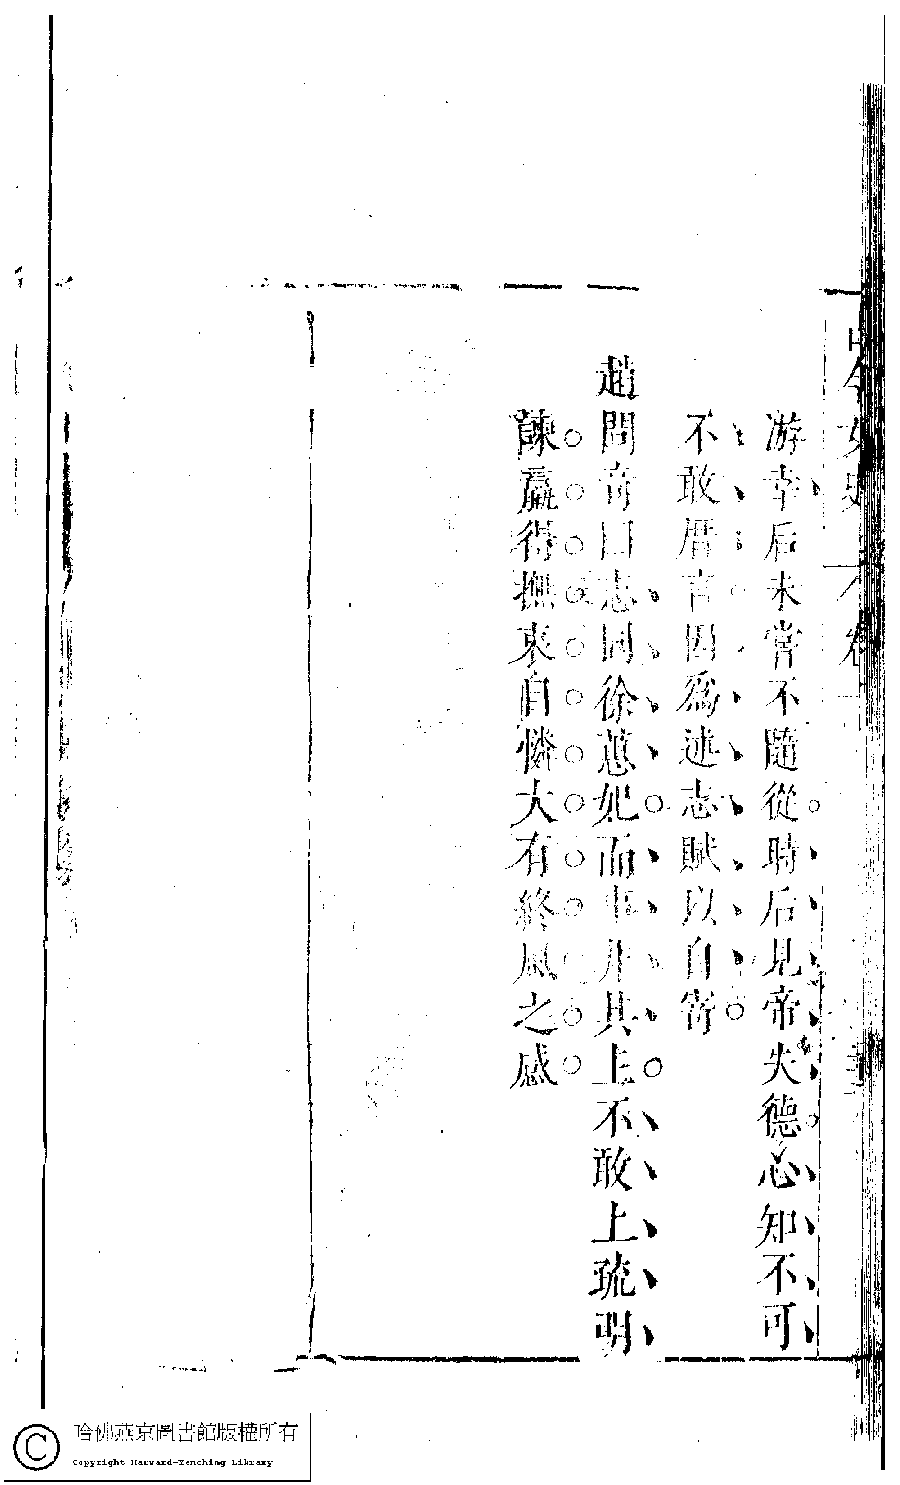 古今女史 卷
游幸后未嘗不隨從時后見帝失德心知不可
不敢厝言因爲述志賦以自寄
趙問奇曰志同徐蕙妃而事非其上不敢上疏明
諫贏得撫衷自憐大有終風之感
哈佛燕京圖書館版權所有
Copyright Harvard-Yenching Library